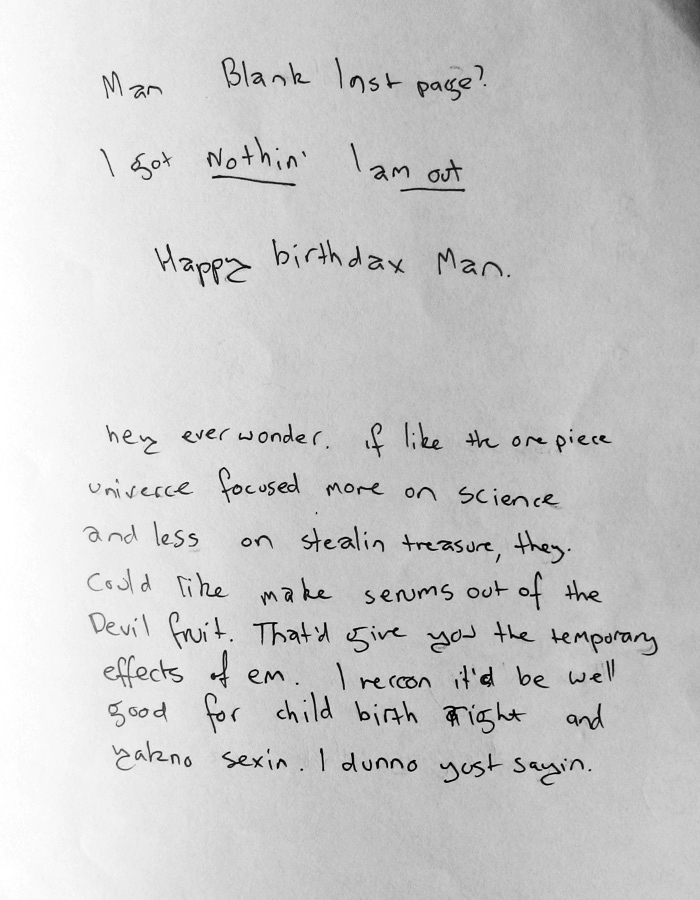 Man Blank last page?
I got Nothin' I am out
Happy birthdax Man.
hey ever wonder. if like the one piece
univerce focused more on science
and less on stealin treasure, they.
Could like make serums out of the
Devil fruit. That'd give you the temporary
effects of em. I reccon it'd be well
good for child birth right and
yakno sexin. I dunno yust sayin.